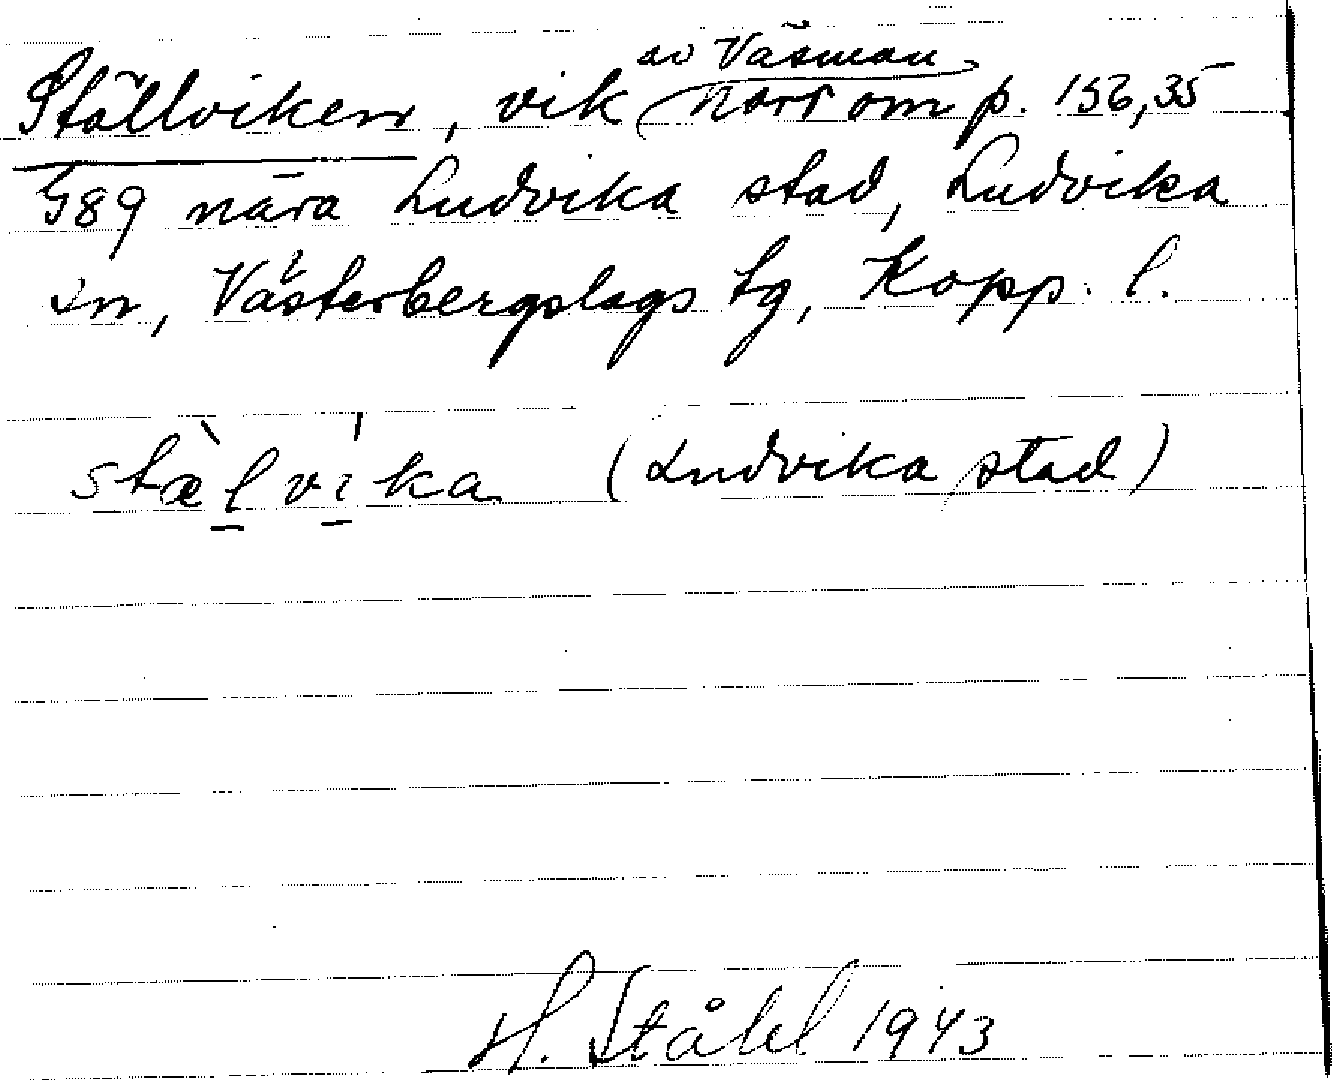 Ställviken, vik av Väsman norr om p. 156,35
G89 nära Ludvika stad, Ludvika
sn, Västerbergslags tg, Kopp. l.
stæ̀lvı̍ka (Ludvika stad)
H. Ståhl 1943